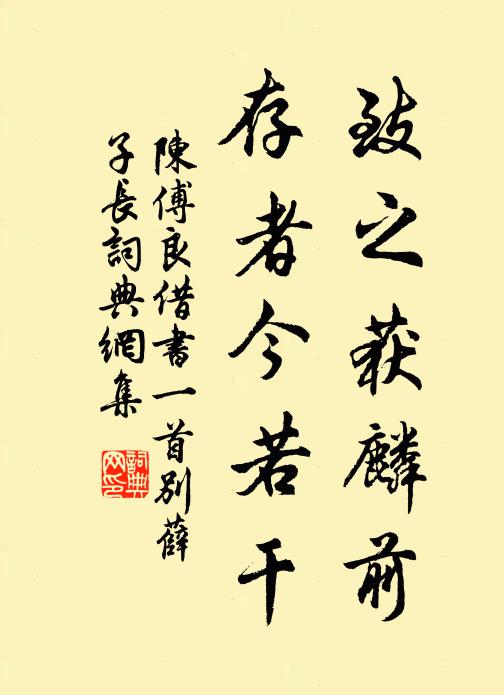 致之获麟前
存者今若干
陳傅良借書一首别薛
子長詞典網集
詞典
网印